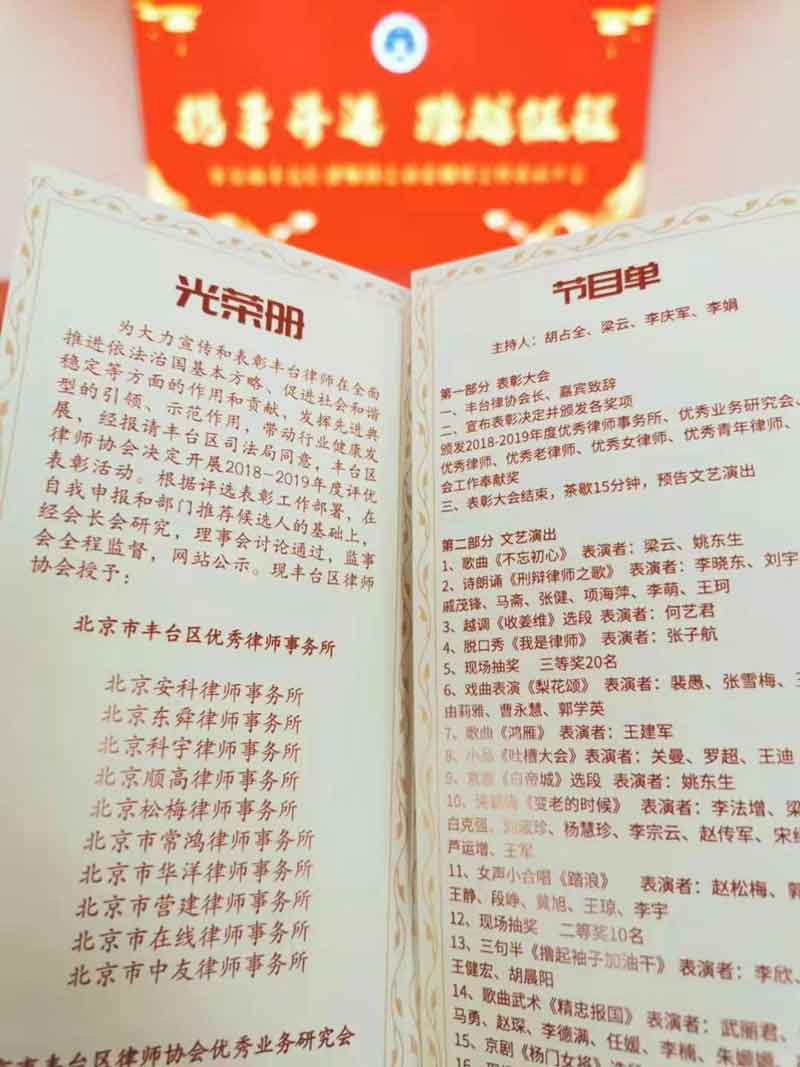 光荣册
为大力宣传和表彰丰台律师在全面
推进依法治国基本方略、促进社会和谐
稳定等方面的作用和贡献，发挥先进典
型的引领、示范作用，带动行业健康发
展，经报请丰台区司法局同意，丰台区
律师协会决定开展2018-2019年度评优
表彰活动。根据评选表彰工作部署，在
自我申报和部门推荐候选人的基础上，
经会长会研究，理事会讨论通过，监事
会全程监督，网站公示。现丰台区律师
协会授予：
北京市丰台区优秀律师事务所
北京安科律师事务所
北京东舜律师事务所
北京科宇律师事务所
北京顺高律师事务所
北京松梅律师事务所
北京市常鸿律师事务所
北京市华洋律师事务所
北京市营建律师事务所
北京市在线律师事务所
北京市中友律师事务所
市丰台区律师协会优秀业务研究会
节目单
主持人：胡占全、梁云、李庆军、李娟
第一部分 表彰大会
一、丰台律协会长、嘉宾致辞
二、宣布表彰决定并颁发各奖项
颁发2018-2019年度优秀律师事务所、优秀业务研究会、
优秀律师、优秀老律师、优秀女律师、优秀青年律师、
会工作奉献奖
三、表彰大会结束，茶歇15分钟，预告文艺演出
第二部分 文艺演出
1、歌曲《不忘初心》 表演者：梁云、姚东生
2、诗朗诵《刑辩律师之歌》 表演者：李晓东、刘宇
戚茂锋、马斋、张健、项海萍、李萌、王珂
3、越调《收姜维》选段 表演者：何艺君
4、脱口秀《我是律师》 表演者：张子航
5、现场抽奖 三等奖20名
6、戏曲表演《梨花颂》 表演者：裴愚、张雪梅、王
由莉雅、曹永慧、郭学英
7、歌曲《鸿雁》 表演者：王建军
8、小品《吐槽大会》表演者：关曼、罗超、王迪
9、京剧《白帝城》选段 表演者：姚东生
10、《变老的时候》 表演者：李法增、梁
白克强、刘淑珍、杨慧珍、李宗云、赵传军、宋红
芦运增、王军
11、女声小合唱《踏浪》 表演者：赵松梅、郭
王静、段峥、黄旭、王琼、李宇
12、现场抽奖 二等奖10名
13、三句半《撸起袖子加油干》 表演者：李欣、
王健宏、胡晨阳
14、歌曲武术《精忠报国》 表演者：武丽君、
马勇、赵琛、李德满、任媛、李楠、朱姗姗、
15、京剧《杨门女将》选段